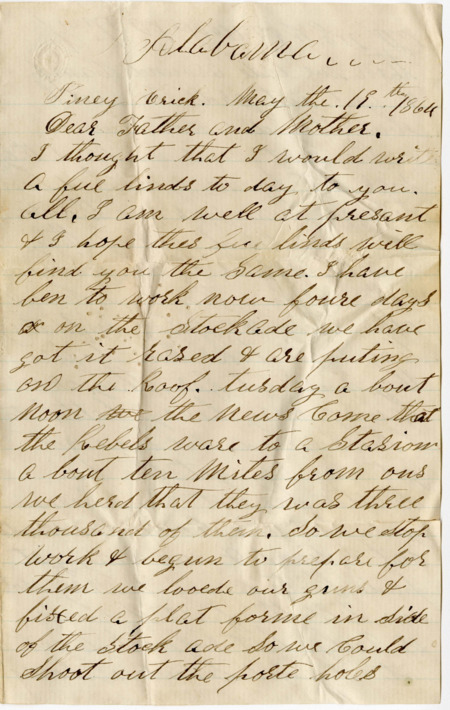 Alabama
Piney Crick. May the. 19.th 1864
Dear Father and Mother.
I thought that I would write
a fue linds to day to you.
all. I am well at presant
& I hope thes fue linds will
find you the same. I have
ben to work now foure days
on the stockade we have
got it rased & are puting
on the roof. tusday a bout
noon the news come that
the Rebels ware to a
a bout ten miles from ous
we herd that they was three
thousand of them. so we stop
work & begun to prepare for
them we looede our guns &
fixed a plat forme in side
of the stock ade so we could
shoot out the porte holes